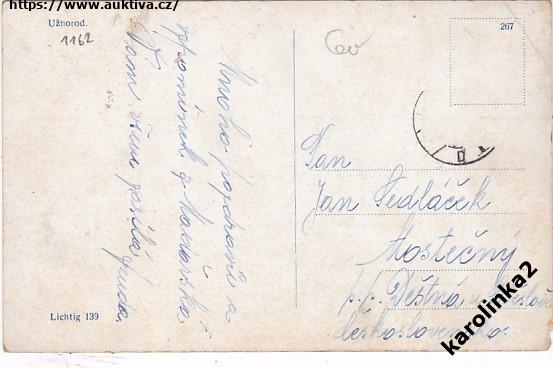 https://www.auktiva.cz/
Užhorod.
1162
267
Mnoho pozdravů a
vzpomínek z Maďarska
Vám všem zasílá
Lichtig 139
Pan
Jan Sedláček
Mostečný
p.p. Deštná
Československo.
karolinka2